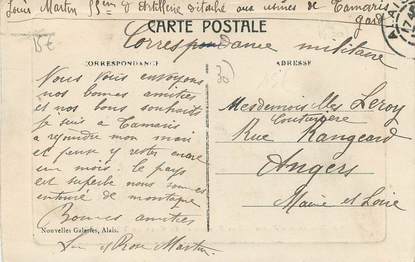 Louis Martin 55em d'Artillerie détaché aux usines de Tamaris
gard
CARTE POSTALE
15€
Correspondance militaire
CORRESPONDANCE
30
ADRESSE
Nous vous envoyons
nos bonnes amitiés
et nos bons souhaits
je suis a Tamaris
a rejoindre mon mari
et peux y rester encore
un mois. le pays
est superbe nous sommes
entouré de montagne
Bonnes amitiés
Rose Martin
Mesdemoiselles Leroy
Couturière
Rue Rangeard
Angers
Maine et Loire
Nouvelles Galeries, Alais.